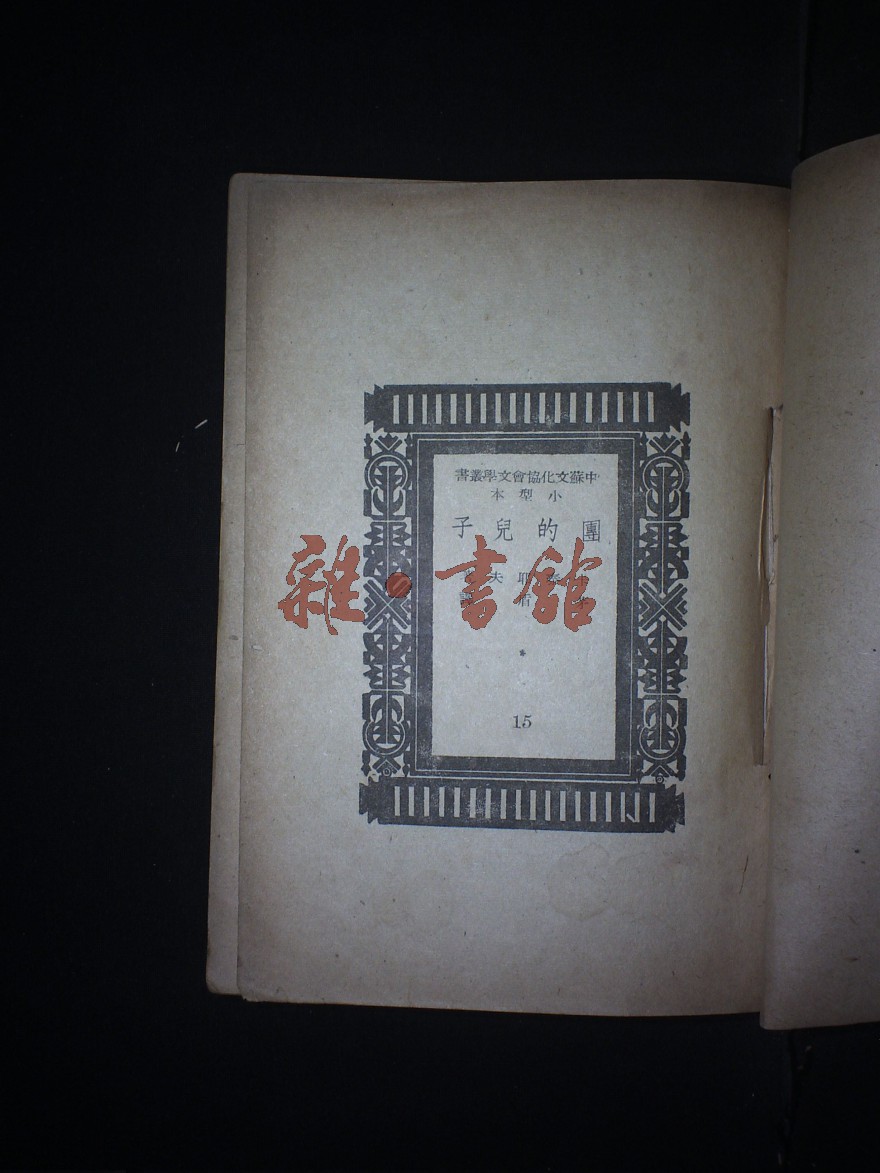 中蘇文化協會文學叢書
小型本
團的兒子
耶夫
15
雜·書館